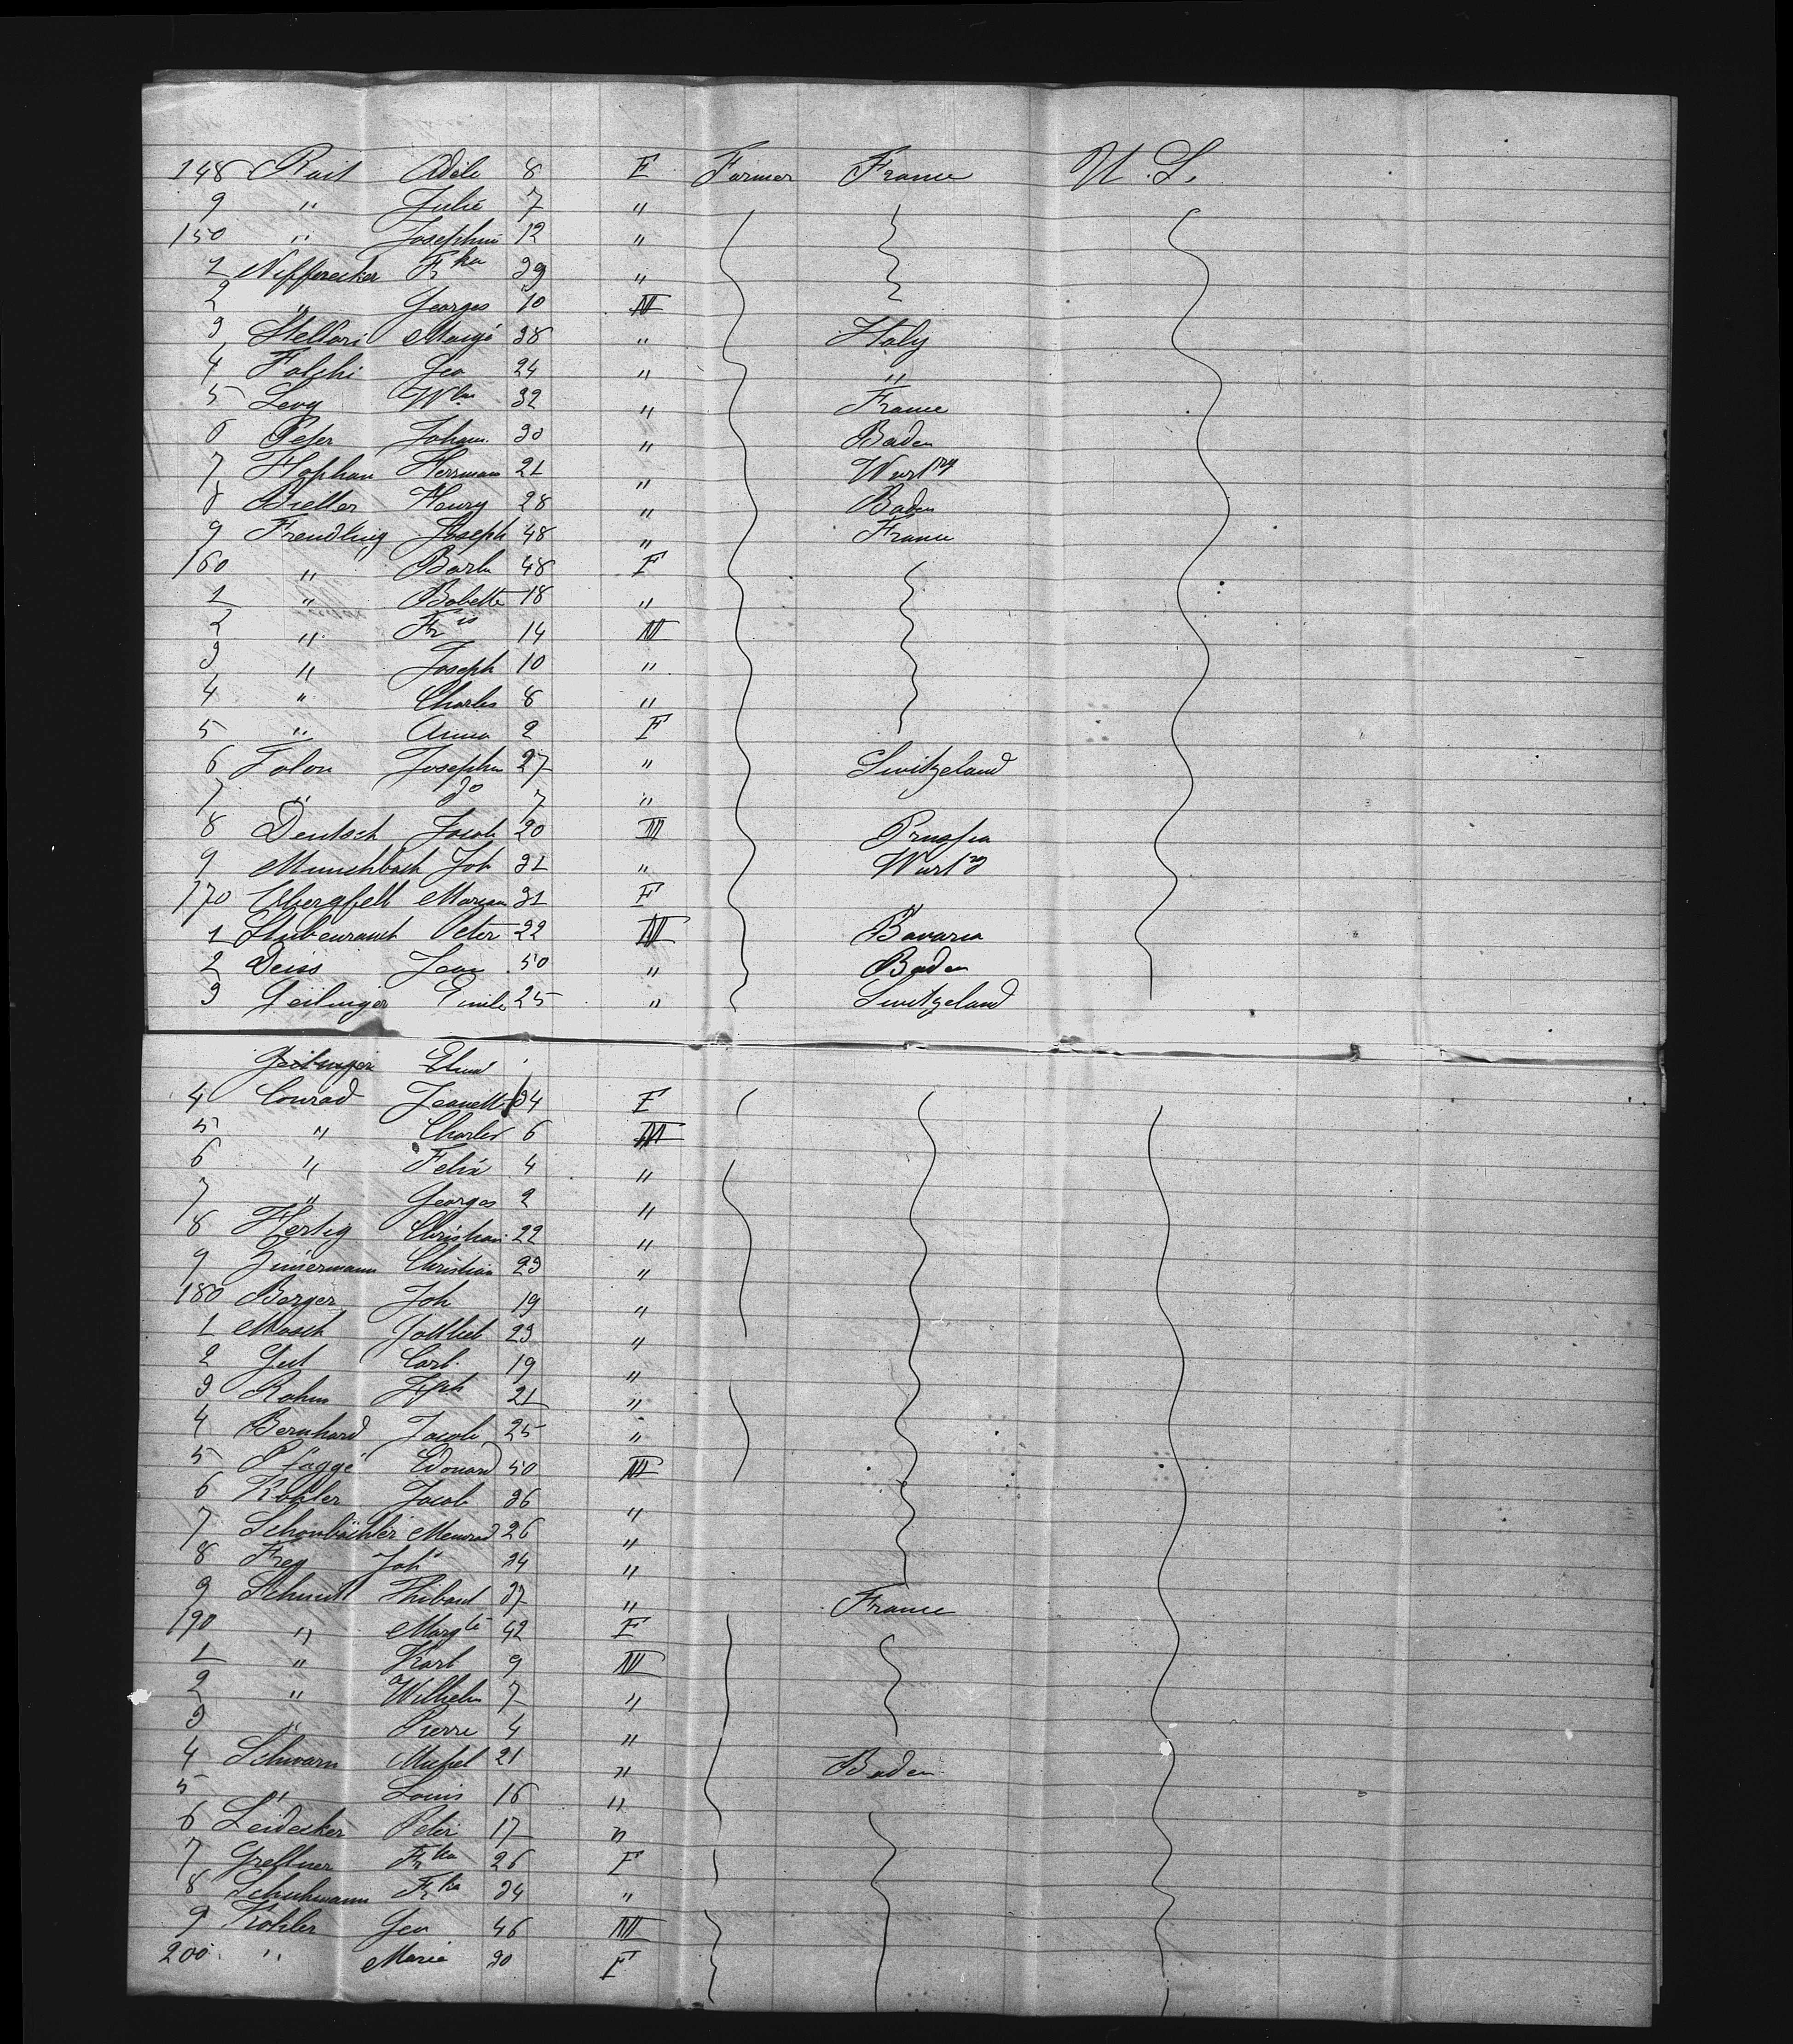 148 Rait Adèle 8 F Farmer France U.S.
9 " Julie 7 "
150 " Josephine 12 "
1 Nifferecker Frka 39 "
2 " Georges 10 M
3 Stellari Maigi 38 " Italy
4 Falchi Geo 24 " "
5 Levy Wm 32 " France
6 Peter Johann 30 " Baden
7 Hophan Herrman 21 " Wurtbg
8 Henry 28 " Baden
9 Frendling Joseph 48 " France
160 " Barba 48 F
1 " Babette 18 "
2 " Frcis 14 M
3 " Joseph 10 "
4 " Charles 8 "
5 " Anna 2 F
6 Folon Josephine 27 " Switzeland
7 " do 7 "
8 Deutsch Jacob 20 M Prussia
9 Munchbach Joh 31 " Wurtbg
170 Ubergfell Mariann 31 F "
1 Stubenrauch Peter 22 M Bavaria
2 Deiss Jean 50 " Baden
3 Geilinger Emile 25 " Switzeland
Geilinger
4 Conrad Jeanette 34 F
5 " Charles 6 M
6 " Felix 4 "
7 " Georges 2 "
8 Hertig Christian 22 "
9 Zimermann Christian 23 "
180 Berger Joh 19 "
1 Mosch Gottlieb 23 "
2 Gut Carl 19 "
3 Rohm Jph 21 "
4 Bernhard Jacob 25 "
5 Edouard 50 M
6 Kohler Jacob 36 "
7 Schonbächler Meinrad 26 "
8 Frey Joh 24 "
9 Schmit Thibaut 37 " France
190 " Margte 42 F
1 " Karl 9 M
2 " Wilhelm 7 "
3 " Pierre 4 "
4 Schwarn Michel 21 " Baden
5 " Louis 16 "
6 Leidecker Peter 17 "
7 Greltner Frka 26 F
8 Schuhmann Frka 24 "
9 Kohler Geo 46 M
200 " Marie 30 F